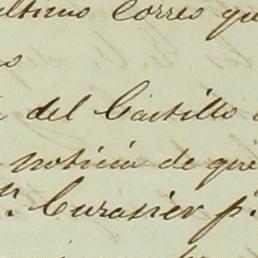 ultimo Correo que
del Castillo
noticia de que
Curasier p.